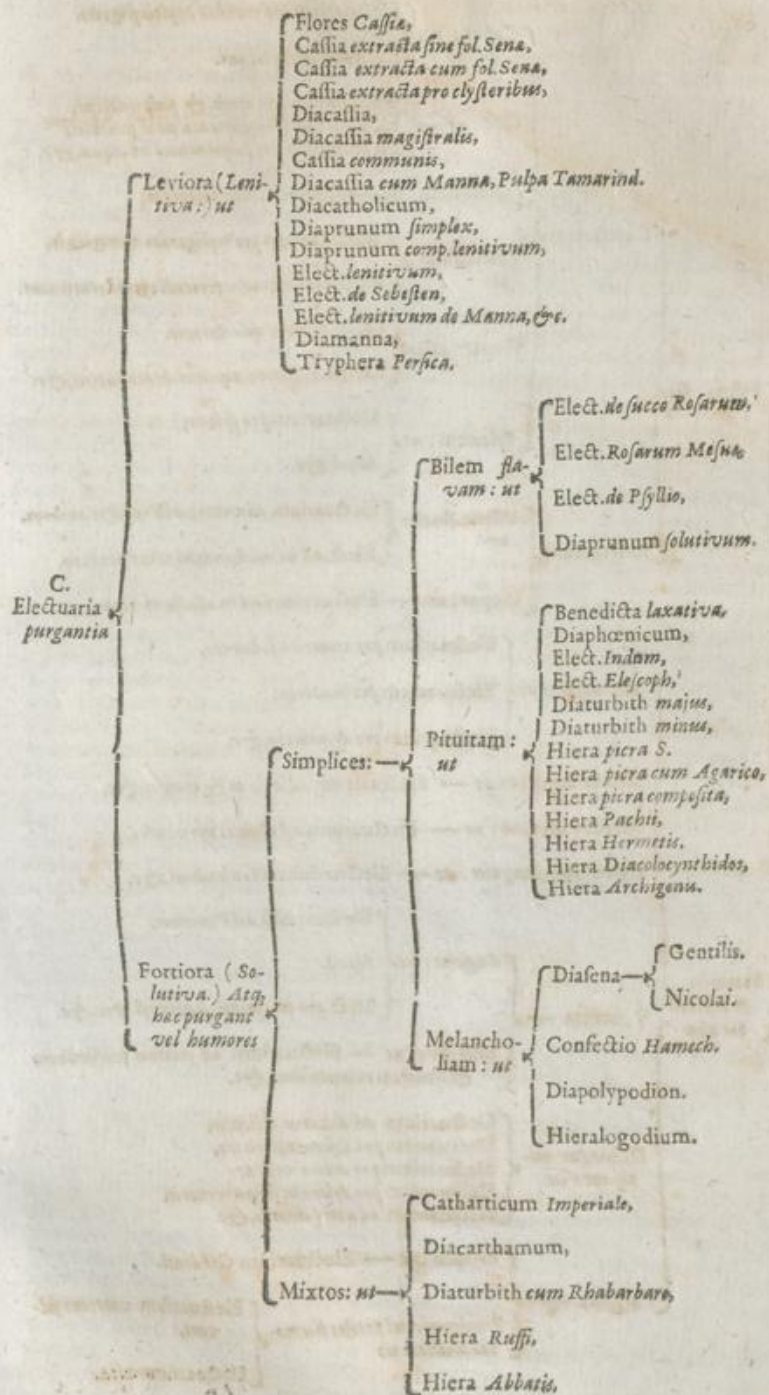 Flores Caſſiæ,
Caſſia extracta ſine fol. Senæ,
Caſſia extracta cum fol. Senæ,
Caſſia extracta pro clyſteribus,
Diacaſſia,
Diacaſſia magiſtralis,
Caſſia communis,
Leviora (Leni-
tiva:) ut
Diacaſſia cum Manna, Pulpa Tamarind.
Diacatholicum,
Diaprunum ſimplex,
Diaprunum comp. lenitivum,
Elect. lenitivum,
Elect. de Sebeſten,
Elect. lenitivum de Manna, &c.
Diamanna,
Tryphera Perſica.
C.
Electuaria
purgantia
Fortiora (So-
lutiva.) Atq;
hæc purgant
vel humores
Simplices:
Bilem fla-
vam: ut
Elect. de ſucco Roſarum,
Elect. Roſarum Meſuæ,
Elect. de Pſyllio,
Diaprunum ſolutivum.
Pituitam:
ut
Benedicta laxativa,
Diaphœnicum,
Elect. Indum,
Elect. Eleſcoph,
Diaturbith majus,
Diaturbith minus,
Hiera picra S.
Hiera picra cum Agarico,
Hiera picra compoſita,
Hiera Pachii,
Hiera Hermetis.
Hiera Diacolocynthidos,
Hiera Archigenis.
Melancho-
liam: ut
Diaſena
Gentilis.
Nicolai.
Confectio Hamech.
Diapolypodion.
Hieralogodium.
Mixtos: ut
Catharticum Imperiale,
Diacarthamum,
Diaturbith cum Rhabarbaro,
Hiera Ruffi,
Hiera Abbatis,